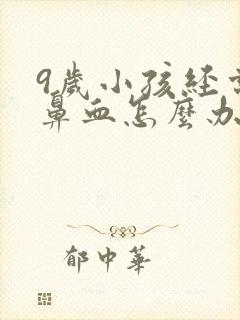 9歲小孩經常
鼻血怎麼办
郁中華